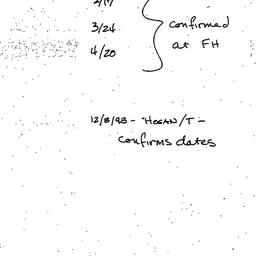 3/24 confirmed
4/20 at FH
12/8/98 - "HOGAN/T -
confirms dates